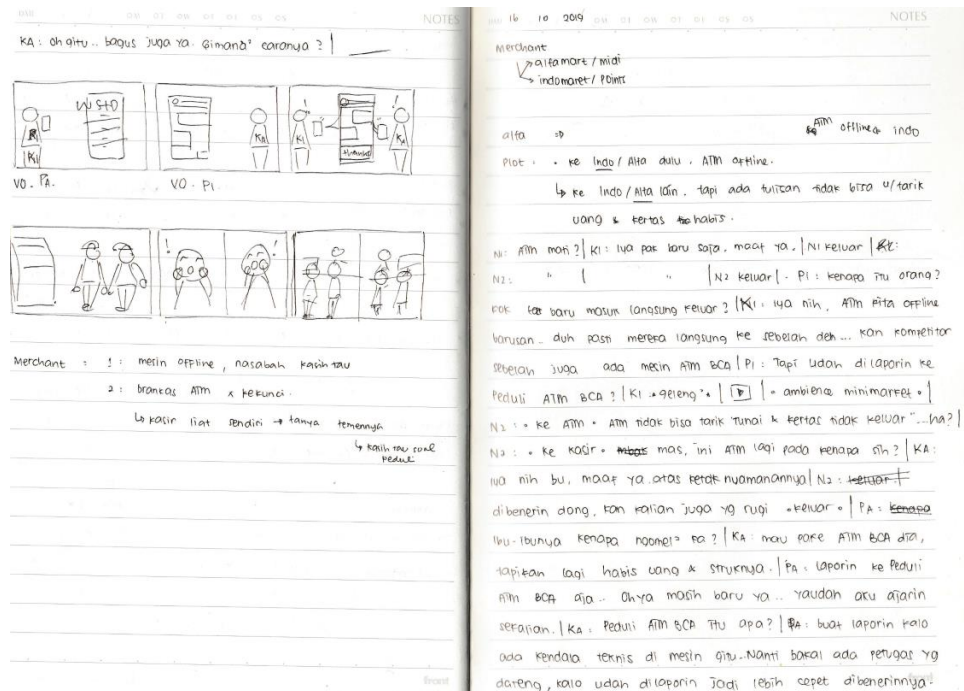 NOTES
KA : oh gitu.. bagus juga ya. Gimana² caranya ? |
KI
KA
KI
KA
VO. PA.
VO. PI.
Merchant : 1 : mesin offline, nasabah kasih tau
2 : brankas ATM x kekunci.
↳ kasir liat sendiri → tanya temennya
↳ kasih tau soal
Peduli
16 10 2019
NOTES
Merchant
alfamart / midi
indomaret / Points
alfa ⇒ ATM offline indo
Plot : • ke Indo / Alfa dulu . ATM offline.
↳ ke Indo / Alfa lain . tapi ada tulisan tidak bisa u/tarik
uang & kertas habis .
N1 : ATM mati ? | KI : iya pak baru saja. maaf ya. | N1 keluar |
N2 : " | " | N2 keluar | . PI : kenapa itu orang ?
kok baru masuk langsung keluar ? | KI : iya nih, ATM kita offline
barusan.. duh pasti mereka langsung ke sebelah deh... kan kompetitor
sebelah juga ada mesin ATM BCA | PI : Tapi udah dilaporin ke
Peduli ATM BCA ? | KI : *geleng²* | ▶ | • ambience minimarket • |
N2 : • ke ATM • ATM tidak bisa tarik tunai & kertas tidak keluar "...ha? |
N2 : • ke kasir • mas, ini ATM lagi pada kenapa sih ? | KA :
iya nih bu, maaf ya atas ketaknyamanannya | N2 : keluar |
dibenerin dong, kan kalian juga yg rugi • keluar • | PA : kenapa
ibu-ibunya kenapa ngomel² ka ? | KA : mau pake ATM BCA dia,
tapikan lagi habis uang & struknya. | PA : laporin ke Peduli
ATM BCA aja .. Ohya masih baru ya .. yaudah aku ajarin
sekalian. | KA : Peduli ATM BCA itu apa ? | PA : buat laporin kalo
ada kendala teknis di mesin gitu.. Nanti bakal ada petugas yg
dateng, kalo udah dilaporin jadi lebih cepet dibenerinnya.